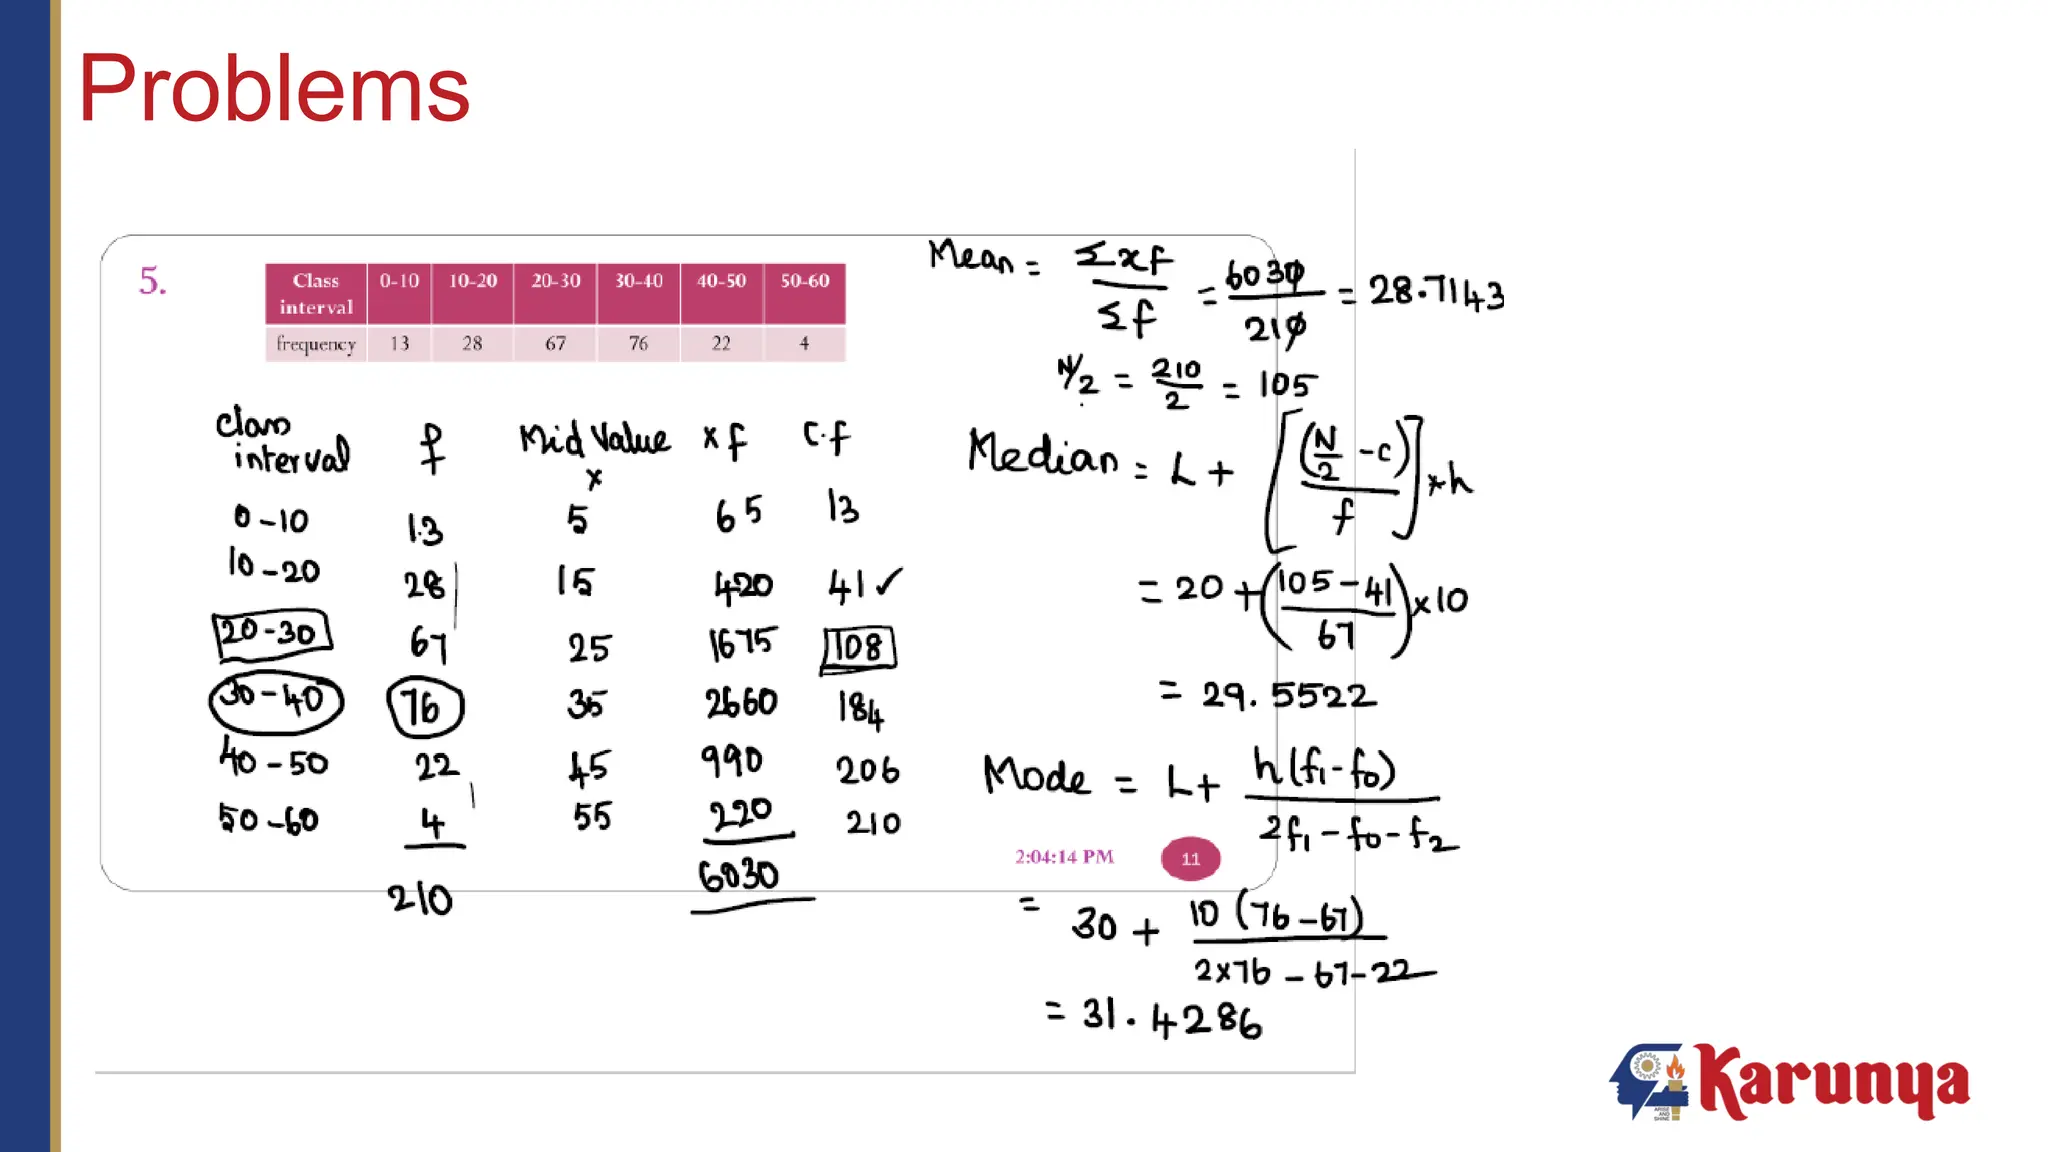 Problems
5.
Class interval 0-10 10-20 20-30 30-40 40-50 50-60
frequency 13 28 67 76 22 4
Class interval f Mid Value x xf C.f
0-10 13 5 65 13
10-20 28 15 420 41 ✓
20-30 67 25 1675 108
30-40 76 35 2660 184
40-50 22 45 990 206
50-60 4 55 220 210
210 6030
Mean = Σxf / Σf = 6030 / 210 = 28.7143
N/2 = 210/2 = 105
Median = L + [(N/2 - c) / f] × h
= 20 + (105 - 41 / 67) × 10
= 29.5522
Mode = L + h(f₁ - f₀) / 2f₁ - f₀ - f₂
2:04:14 PM 11
= 30 + 10 (76 - 67) / 2×76 - 67 - 22
= 31.4286
Karunya
ARISE AND SHINE